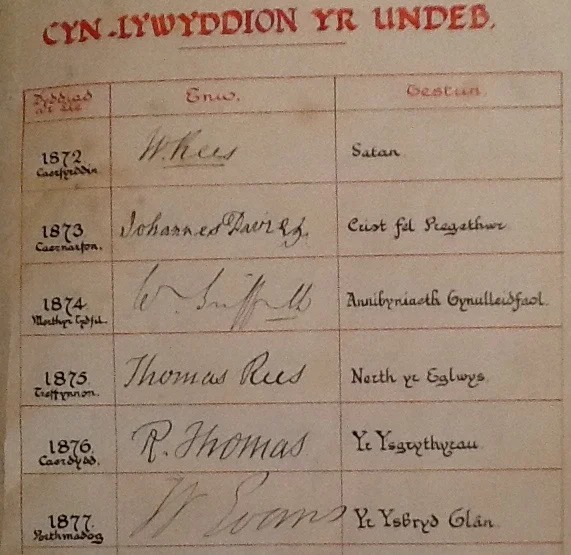 CYN-LYWYDDION YR UNDEB.
Dyddiad a'r lle Enw. Testun.
1872 W. Rees Satan
Caerfyrddin
1873 Johannes Davies Crist fel Pregethwr
Caernarfon.
1874 W. Griffith Annibyniaeth Gynulleidfaol.
Merthyr Tydfil
1875 Thomas Rees Nerth yr Eglwys
Treffynnon.
1876 R. Thomas Yr Ysgrythyrau
Caerdydd.
1877 W Evans Yr Ysbryd Glân
Porthmadog